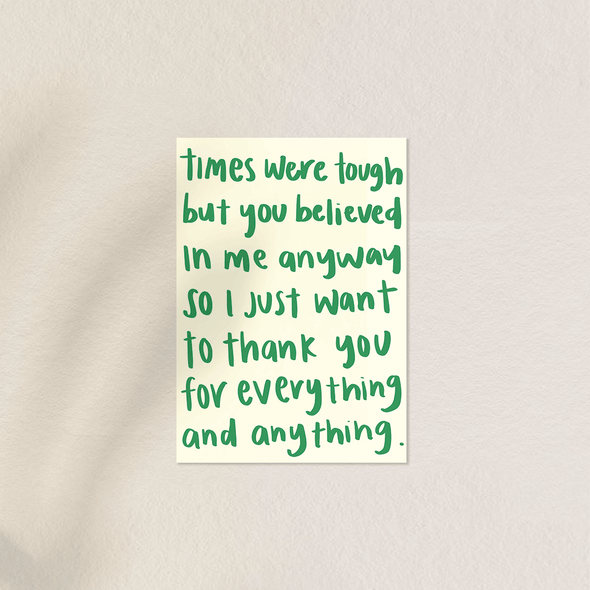 times were tough
but you believed
in me anyway
so I just want
to thank you
for everything
and anything.